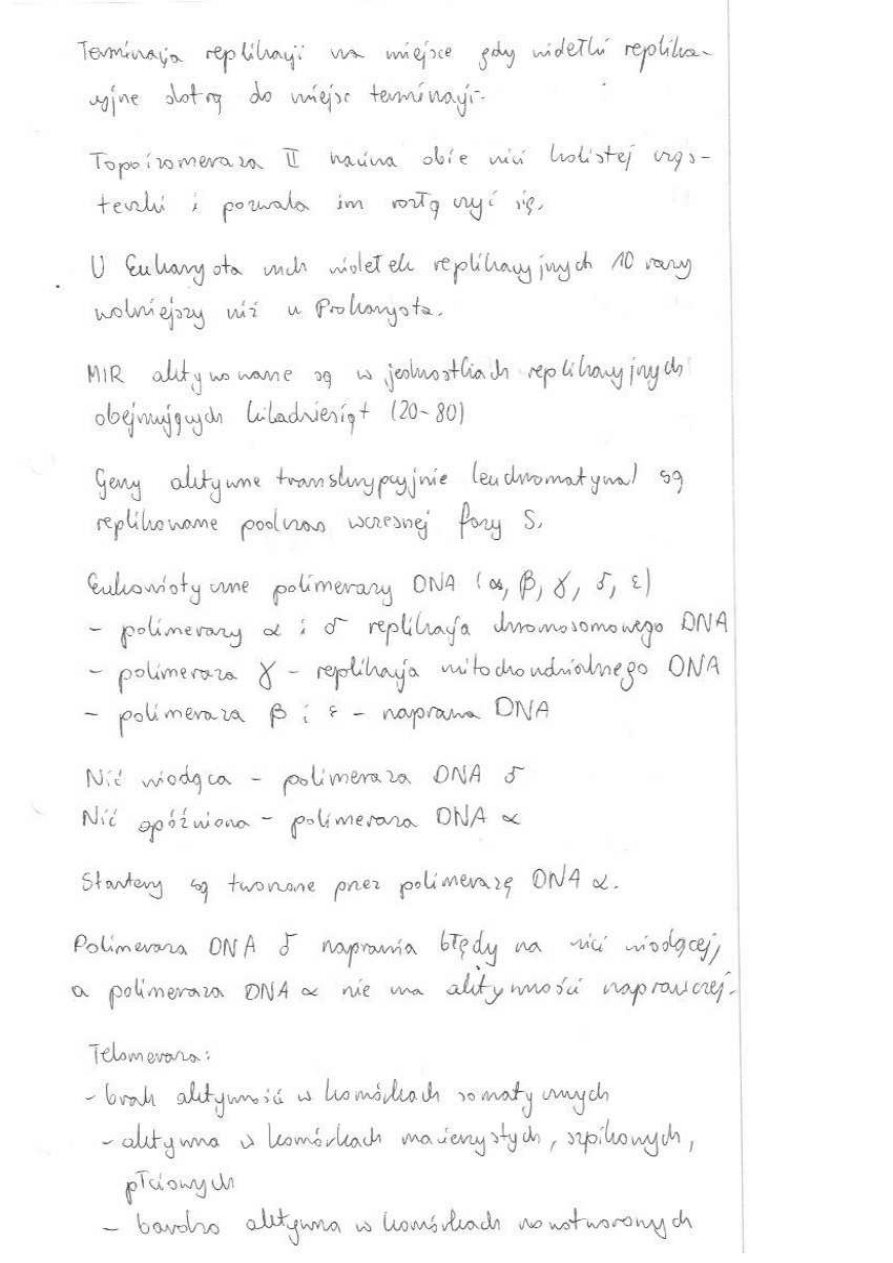 Terminacja replikacji ma miejsce gdy widełki replika-
cyjne dotrą do miejsc terminacji.
Topoizomeraza II nacina obie nici kolistej cząs-
teczki i pozwala im rozłączyć się.
U Eukaryota ruch widełek replikacyjnych 10 razy
wolniejszy niż u Prokaryota.
MIR aktywowane są w jednostkach replikacyjnych
obejmujących kilkadziesiąt (20-80)
Geny aktywne transkrypcyjnie (euchromatyna) są
replikowane podczas wczesnej fazy S.
Eukariotyczne polimerazy DNA (α, β, γ, δ, ε)
- polimerazy α i δ replikacja chromosomowego DNA
- polimeraza γ - replikacja mitochondrialnego DNA
- polimeraza β i ε - naprawa DNA
Nić wiodąca - polimeraza DNA δ
Nić opóźniona - polimeraza DNA α
Startery są tworzone przez polimerazę DNA α.
Polimeraza DNA δ naprawia błędy na nici wiodącej,
a polimeraza DNA α nie ma aktywności naprawczej.
Telomeraza:
- brak aktywność w komórkach somatycznych
- aktywna w komórkach macierzystych, szpikowych,
płciowych
- bardzo aktywna w komórkach nowotworowych